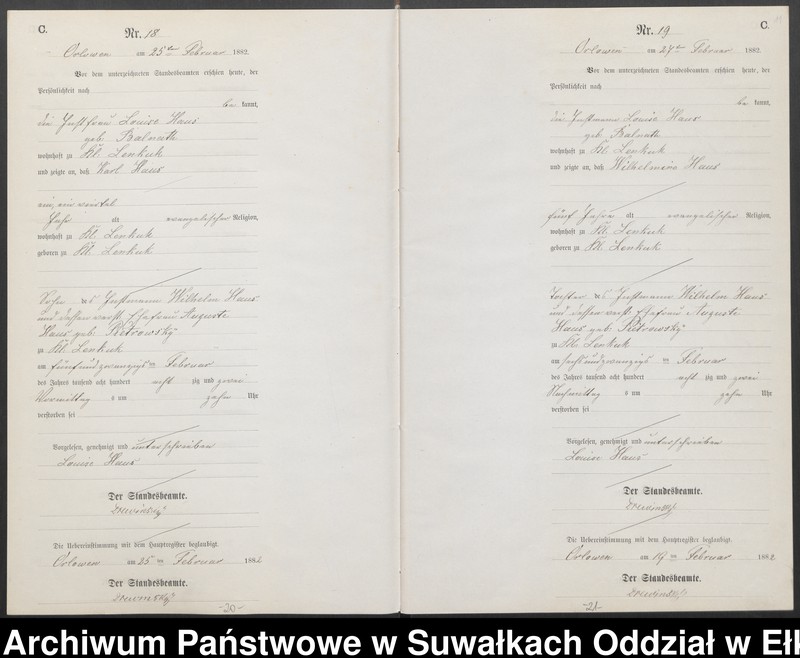 C.
Nr. 18
Orlowen am 25ten Februar 1882.
Vor dem unterzeichneten Standesbeamten erschien heute, der
Persönlichkeit nach
be kannt,
die Instfrau Louise Haus
geb. Balnuth
wohnhaft zu Kl. Lenkuk
und zeigte an, daß Karl Haus
ein, ein viertel
Jahr alt evangelischer Religion,
wohnhaft zu Kl. Lenkuk
geboren zu Kl. Lenkuk
Sohn des Instmann Wilhelm Haus
und dessen verst. Ehefrau Auguste
Haus geb. Pietrowsky
zu Kl. Lenkuk
am fünfundzwanzigsten Februar
des Jahres tausend acht hundert acht zig und zwei
Vormittag s um zehn Uhr
verstorben sei
Vorgelesen, genehmigt und unterschrieben
Louise Haus
Der Standesbeamte.
Die Uebereinstimmung mit dem Hauptregister beglaubigt.
Orlowen am 25ten Februar 1882
Der Standesbeamte.
-20-
C.
Nr. 19
Orlowen am 27ten Februar 1882.
Vor dem unterzeichneten Standesbeamten erschien heute, der
Persönlichkeit nach
be kannt,
die Louise Haus
geb. Balnuth
wohnhaft zu Kl. Lenkuk
und zeigte an, daß Wilhelmine Haus
fünf Jahre alt evangelischer Religion,
wohnhaft zu Kl. Lenkuk
geboren zu Kl. Lenkuk
Tochter des Instmann Wilhelm Haus
und dessen verst. Ehefrau Auguste
Haus geb. Pietrowsky
zu Kl. Lenkuk
am sechsundzwanzigsten Februar
des Jahres tausend acht hundert acht zig und zwei
Nachmittag s um zehn Uhr
verstorben sei
Vorgelesen, genehmigt und unterschrieben
Louise Haus
Der Standesbeamte.
Die Uebereinstimmung mit dem Hauptregister beglaubigt.
Orlowen am Februar 1882
Der Standesbeamte.
-21-
Archiwum Państwowe w Suwałkach Oddział w Ełk